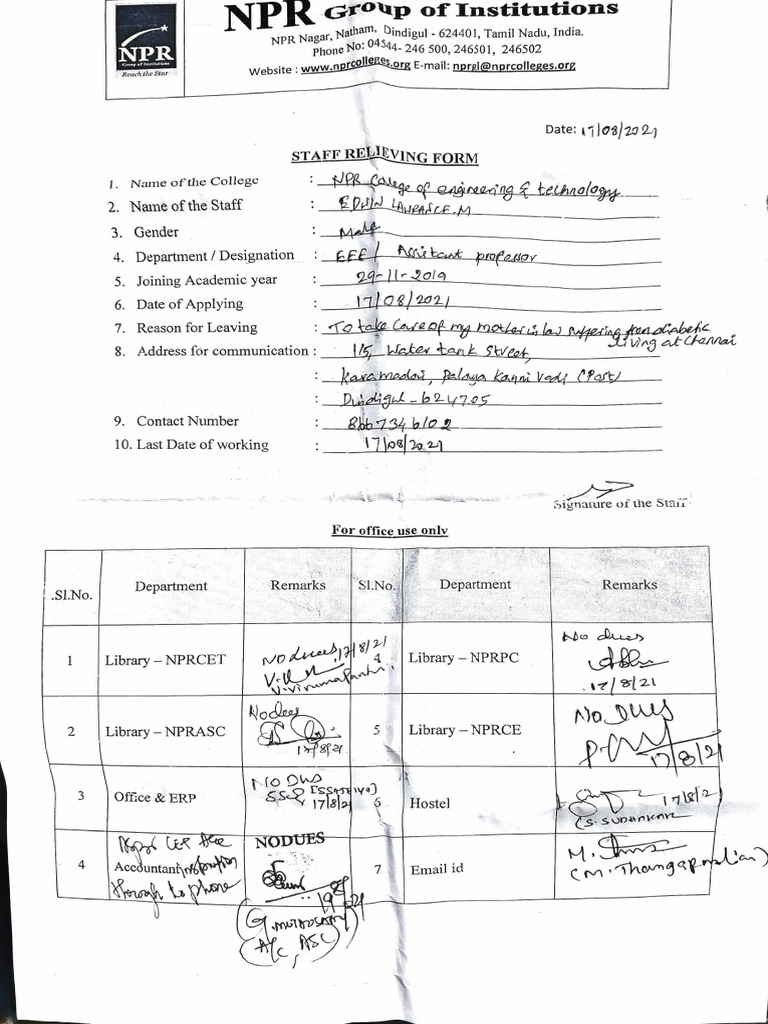 NPR Group of Institutions
NPR Nagar, Natham, Dindigul - 624401, Tamil Nadu, India.
Phone No: 04544- 246 500, 246501, 246502
Website : www.nprcolleges.org E-mail: nprgi@nprcolleges.org
NPR
Group of Institutions
Reach the Star
Date: 17/08/2021
STAFF RELIEVING FORM
1. Name of the College : NPR College of engineering & technology
2. Name of the Staff : EDWIN LAWRANCE.M
3. Gender : Male
4. Department / Designation : EEE / Assistant professor
5. Joining Academic year : 29-11-2019
6. Date of Applying : 17/08/2021
7. Reason for Leaving : To take care of my mother in law suffering from diabetic
living at Chennai
8. Address for communication : 1/5, Water tank Street,
: Karamadai, Palaya Kanni Vadi (Post)
: Dindigul - 624705
9. Contact Number : 8667346102
10. Last Date of working : 17/08/2021
Signature of the Staff
For office use only
.Sl.No. Department Remarks Sl.No. Department Remarks
1 Library – NPRCET No dues 17/8/21 4 Library – NPRPC No dues 17/8/21
2 Library – NPRASC No dues 17/8/21 5 Library – NPRCE No DUES 17/8/21
3 Office & ERP NO DUS 17/8/21 6 Hostel 17/8/21
(S. SUDHAKAR
4 Accountant through phone NODUES 7 Email id M.
(M. Thangapandian)
A/C, ASC